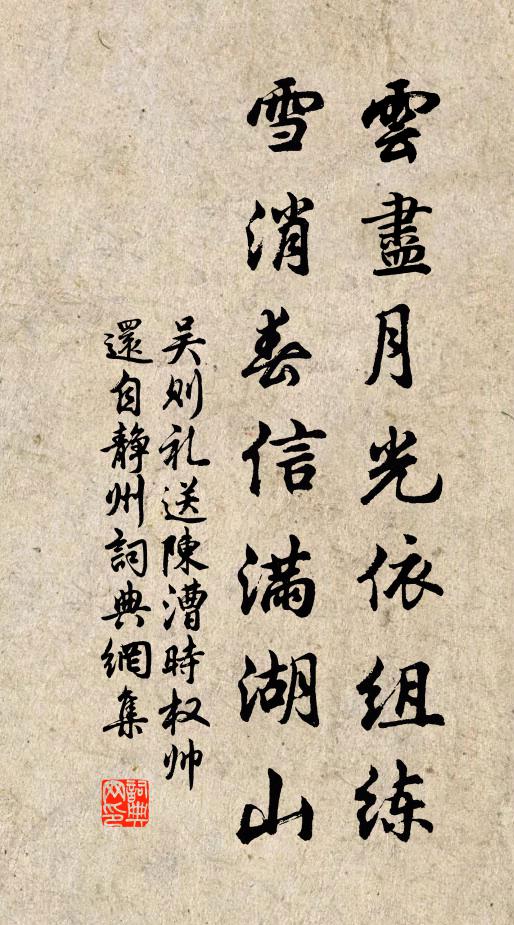 雲盡月光依组练
雪消春信满湖山
吴则礼送陳漕時权帅
還自静州詞典網集
詞典网印